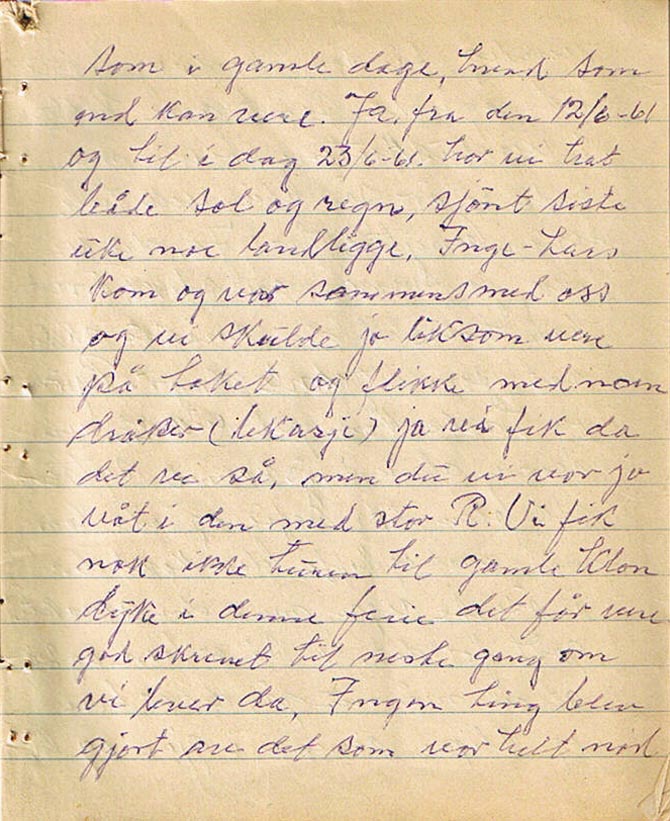 som i gamle dage, hvad som
end kan være. Ja, fra den 12/6-61
og til i dag 23/6-61. har vi hat
både sol og regn, sjønt siste
uke noe landligge, Inge-Lars
kom og var sammens med oss
og vi skulde jo liksom være
på taket og flikke med noen
dråper (lekasje) ja vei fik da
det være så, men du vi var jo
våt i den med stor R. Vi fik
nok ikke turen til gamle Klon
dyke i denne ferie det får være
god skrevet til neste gang om
vi lever da, Ingen ting blev
gjort av det som var helt nød